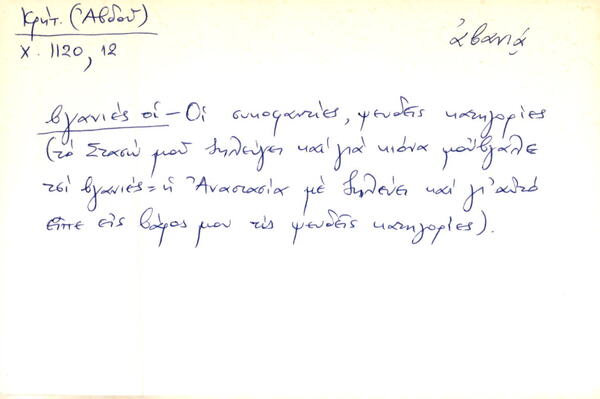 Κρήτ. (Ἀβδοῦ)
χ. 1120, 12
ἀβανιά
βγανιές οἱ - Οἱ συκοφαντίες, ψευδεῖς κατηγορίες
(τό Στασώ μοῦ ζηλεύγει καί γιά κιόνα μοὔβγαλε
τσί βγανιές = ἡ Ἀναστασία μέ ζηλεύει καί γι' αὐτό
εἶπε εἰς βάρος μου τίς ψευδεῖς κατηγορίες).